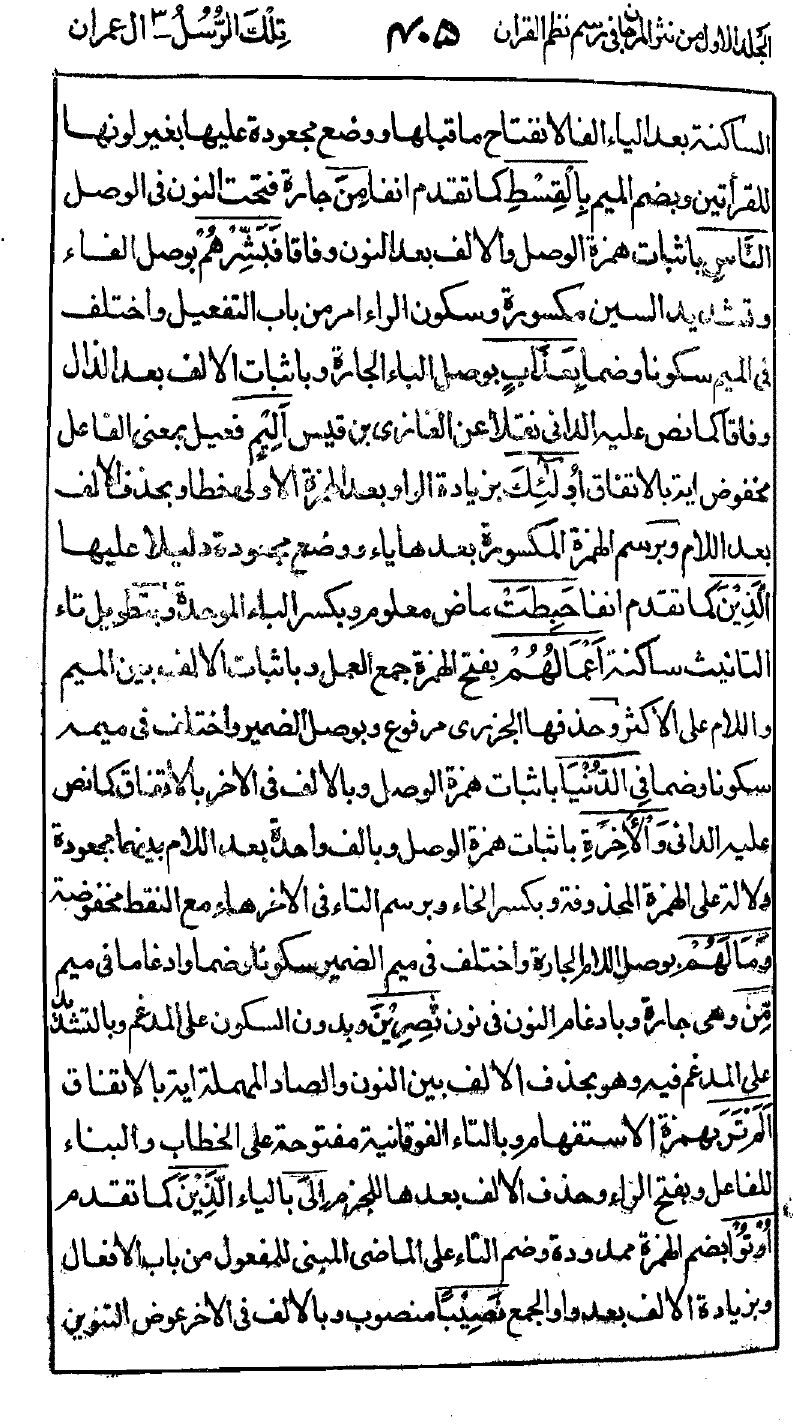 الجلد الاول من نثر المرجان فى رسم نظم القران ٤٠٥ تِلْكَ الرُّسُلُ ٣ ـ ال عمران
الساكنة بعد الياء الفا لانفتاح ما قبلها ووضع مجعودة عليها بغير لونها
للقرأتين وبضم الميم بِالْقِسْطِ كما تقدم انفا مِنَ جارة فتحت النون فى الوصل
النَّاسِ باثبات همزة الوصل والالف بعد النون وفاقا فَبَشِّرْهُمْ بوصل الفاء
وتشديد السين مكسورة وسكون الراء امر من باب التفعيل واختلف
فى الميم سكونا وضما بِعَذَابٍ بوصل الباء الجارة وباثبات الالف بعد الذال
وفاقا كما نص عليه الدانى نقلا عن الغازى بن قيس اَلِيْمٍ فعيل بمعنى الفاعل
مخفوض اية بالاتفاق اُولٰئِكَ بزيادة الواو بعد الهمزة الاولى خطا وبحذف الالف
بعد اللام وبرسم الهمزة المكسورة بعدها ياء ووضع مجعودة دليلا عليها
الَّذِيْنَ كما تقدم انفا حَبِطَتْ ماض معلوم وبكسر الباء الموحدة وبتطويل تاء
التانيث ساكنة اَعْمَالُهُمْ بفتح الهمزة جمع العمل وباثبات الالف بين الميم
واللام على الاكثر وحذفها الجزرى مرفوع وبوصل الضمير واختلف فى ميمه
سكونا وضما فِى الدُّنْيَا باثبات همزة الوصل وبالالف فى الاخر بالاتفاق كما نص
عليه الدانى وَالْاٰخِرَةِ باثبات همزة الوصل وبالف واحدة بعد اللام بينهما مجعودة
دلالة على الهمزة المحذوفة وبكسر الخاء وبرسم التاء فى الاخر هاء مع النقط مخفوضة
وَمَا لَهُمْ بوصل اللام الجارة واختلف فى ميم الضمير سكونا وضما وادغاما فى ميم
مِّنْ وهى جارة وبادغام النون فى نون نّٰصِرِيْنَ وبدون السكون على المدغم وبالتشديد
على المدغم فيه وهو بحذف الالف بين النون والصاد المهملة اية بالاتفاق
اَلَمْ تَرَ بهمزة الاستفهام وبالتاء الفوقانية مفتوحة على الخطاب والبناء
للفاعل وبفتح الراء وحذف الالف بعدها للجزم اِلَى بالياء الَّذِيْنَ كما تقدم
اُوْتُوْا بضم الهمزة ممدودة وضم التاء على الماضى المبنى للمفعول من باب الافعال
وبزيادة الالف بعد واو الجمع نَصِيْبًا منصوب وبالالف فى الاخر عوض التنوين